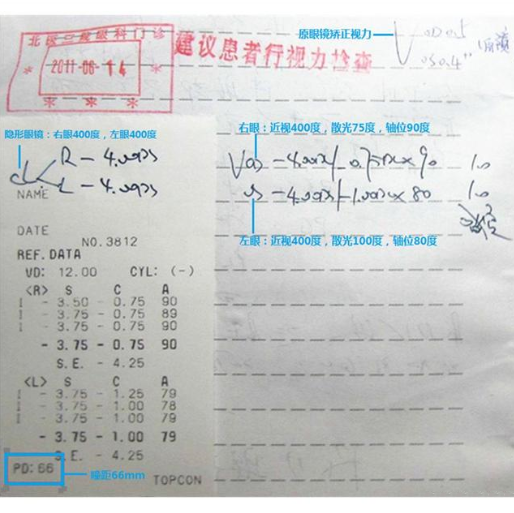 原眼镜矫正视力
V OD 0.5
OS 0.4
北医三院眼科门诊
2011-06-14
建议患者行视力检查
隐形眼镜：右眼400度，左眼400度
右眼：近视400度，散光75度，轴位90度
R - 4.00DS
L - 4.00DS
OD -4.00DS/-0.75DC×90 1.0
OS -4.00DS/-1.00DC×80 1.0
左眼：近视400度，散光100度，轴位80度
NAME
DATE
NO.3812
REF.DATA
VD: 12.00 CYL: (-)
<R> S C A
- 3.50 - 0.75 90
- 3.75 - 0.75 89
- 3.75 - 0.75 90
- 3.75 - 0.75 90
S.E. - 4.25
<L> S C A
- 3.75 - 1.25 79
- 3.75 - 1.00 78
- 3.75 - 1.00 79
- 3.75 - 1.00 79
S.E. - 4.25
PD: 66
瞳距66mm
TOPCON